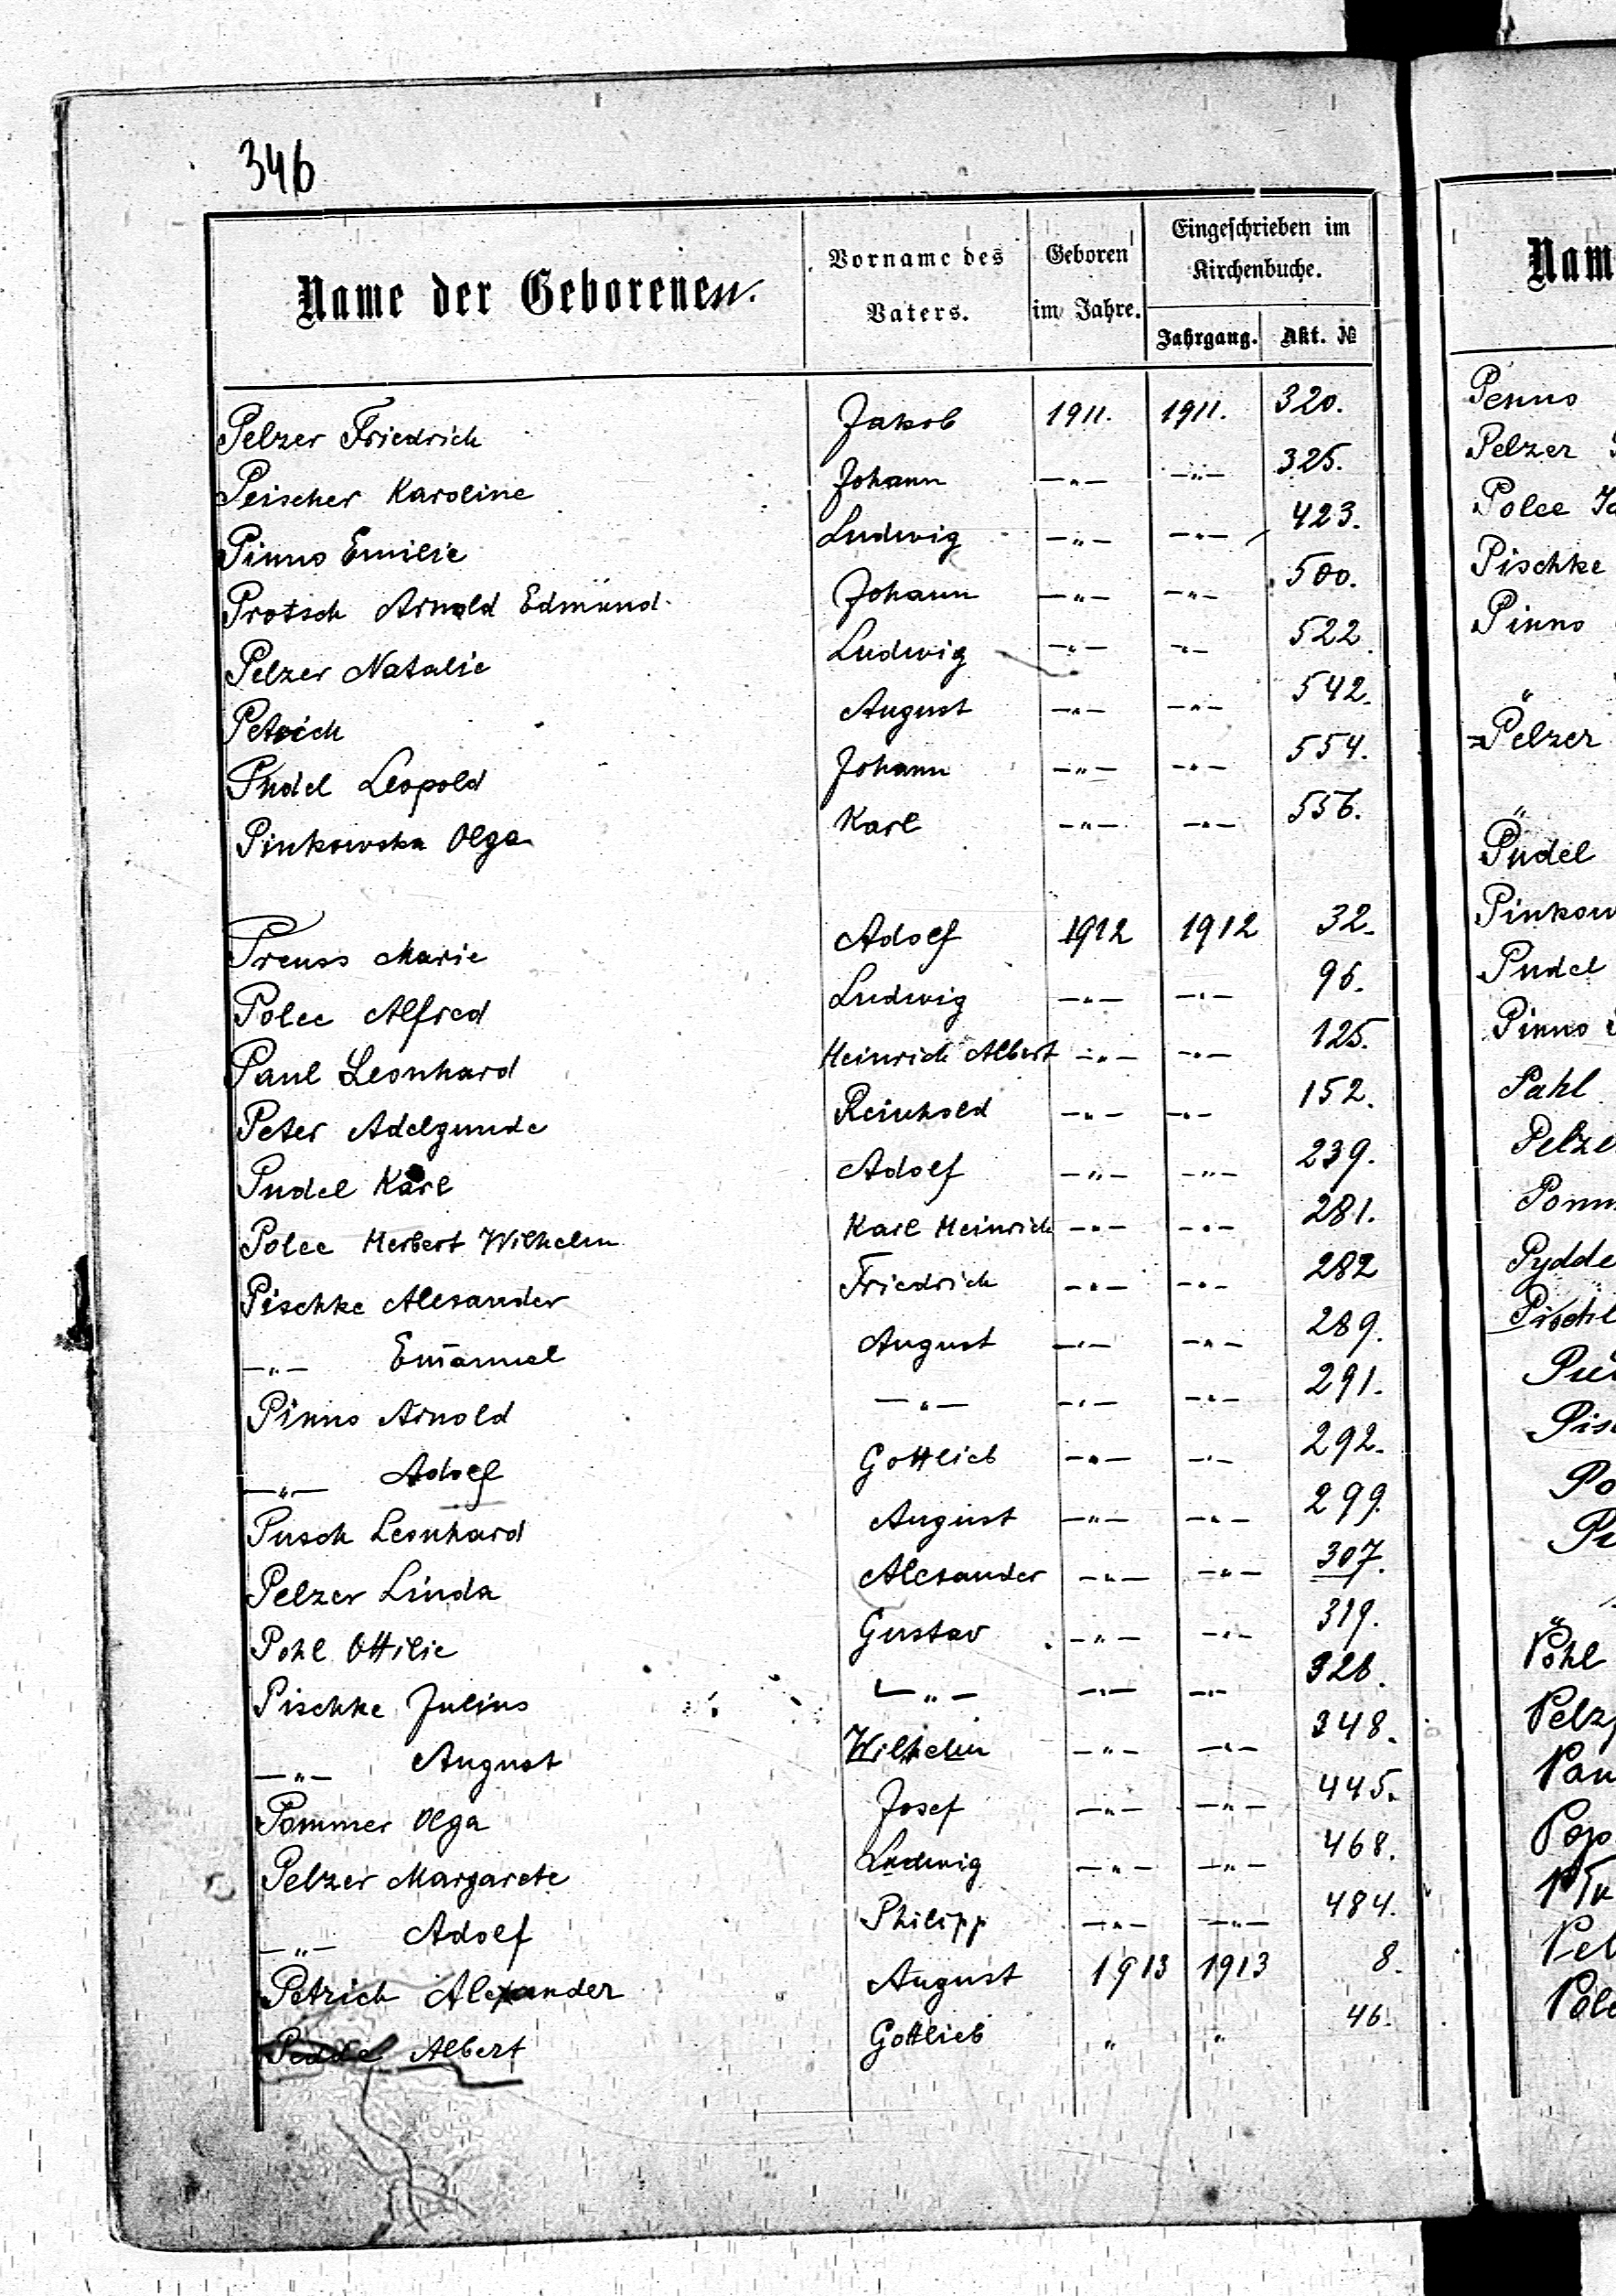 346
Name der Geborenen.
Vorname des Vaters.
Geboren im Jahre.
Eingeschrieben im Kirchenbuche.
Jahrgang. Akt. №
Pelzer Friedrich Jakob 1911. 1911. 320.
Peischer Karoline Johann —„— —„— 325.
Pinno Emilie Ludwig —„— —„— 423.
Protsch Arnold Edmund Johann —„— —„— 500.
Pelzer Natalie Ludwig —„— —„— 522.
Petrich August —„— —„— 542.
Pudel Leopold Johann —„— —„— 554.
Pinkowska Olga Karl —„— —„— 556.
Preuss Marie Adolf 1912 1912 32.
Polee Alfred Ludwig —„— —„— 96.
Paul Leonhard Heinrich Albert —„— —„— 125.
Peter Adelgunde Reinhold —„— —„— 152.
Pudel Karl Adolf —„— —„— 239.
Polee Herbert Wilhelm Karl Heinrich —„— —„— 281.
Pischke Alexander Friedrich —„— —„— 282
—„— Emanuel August —„— —„— 289.
Pinno Arnold —„— —„— —„— 291.
—„— Adolf Gottlieb —„— —„— 292.
Pusch Leonhard August —„— —„— 299.
Pelzer Linda Alexander —„— —„— 307.
Pohl Ottilie Gustav —„— —„— 319.
Pischke Julius —„— —„— —„— 326.
—„— August Wilhelm —„— —„— 348.
Pommer Olga Josef —„— —„— 445.
Pelzer Margarete Ludwig —„— —„— 468.
—„— Adolf Philipp —„— —„— 484.
Petrich Alexander August 1913 1913 8.
Albert Gottlieb „ „ 46.
Nam
Penno
Pelzer
Polee
Pischke
Pinno
„
Pelzer
„
Pudel
Pinkow
Pudel
Pinno
Pahl
Pelze
Pomm
Pydde
Pischk
Pis
Po
„
Pohl
Pelz
Pau
Pop
Pel
Pole